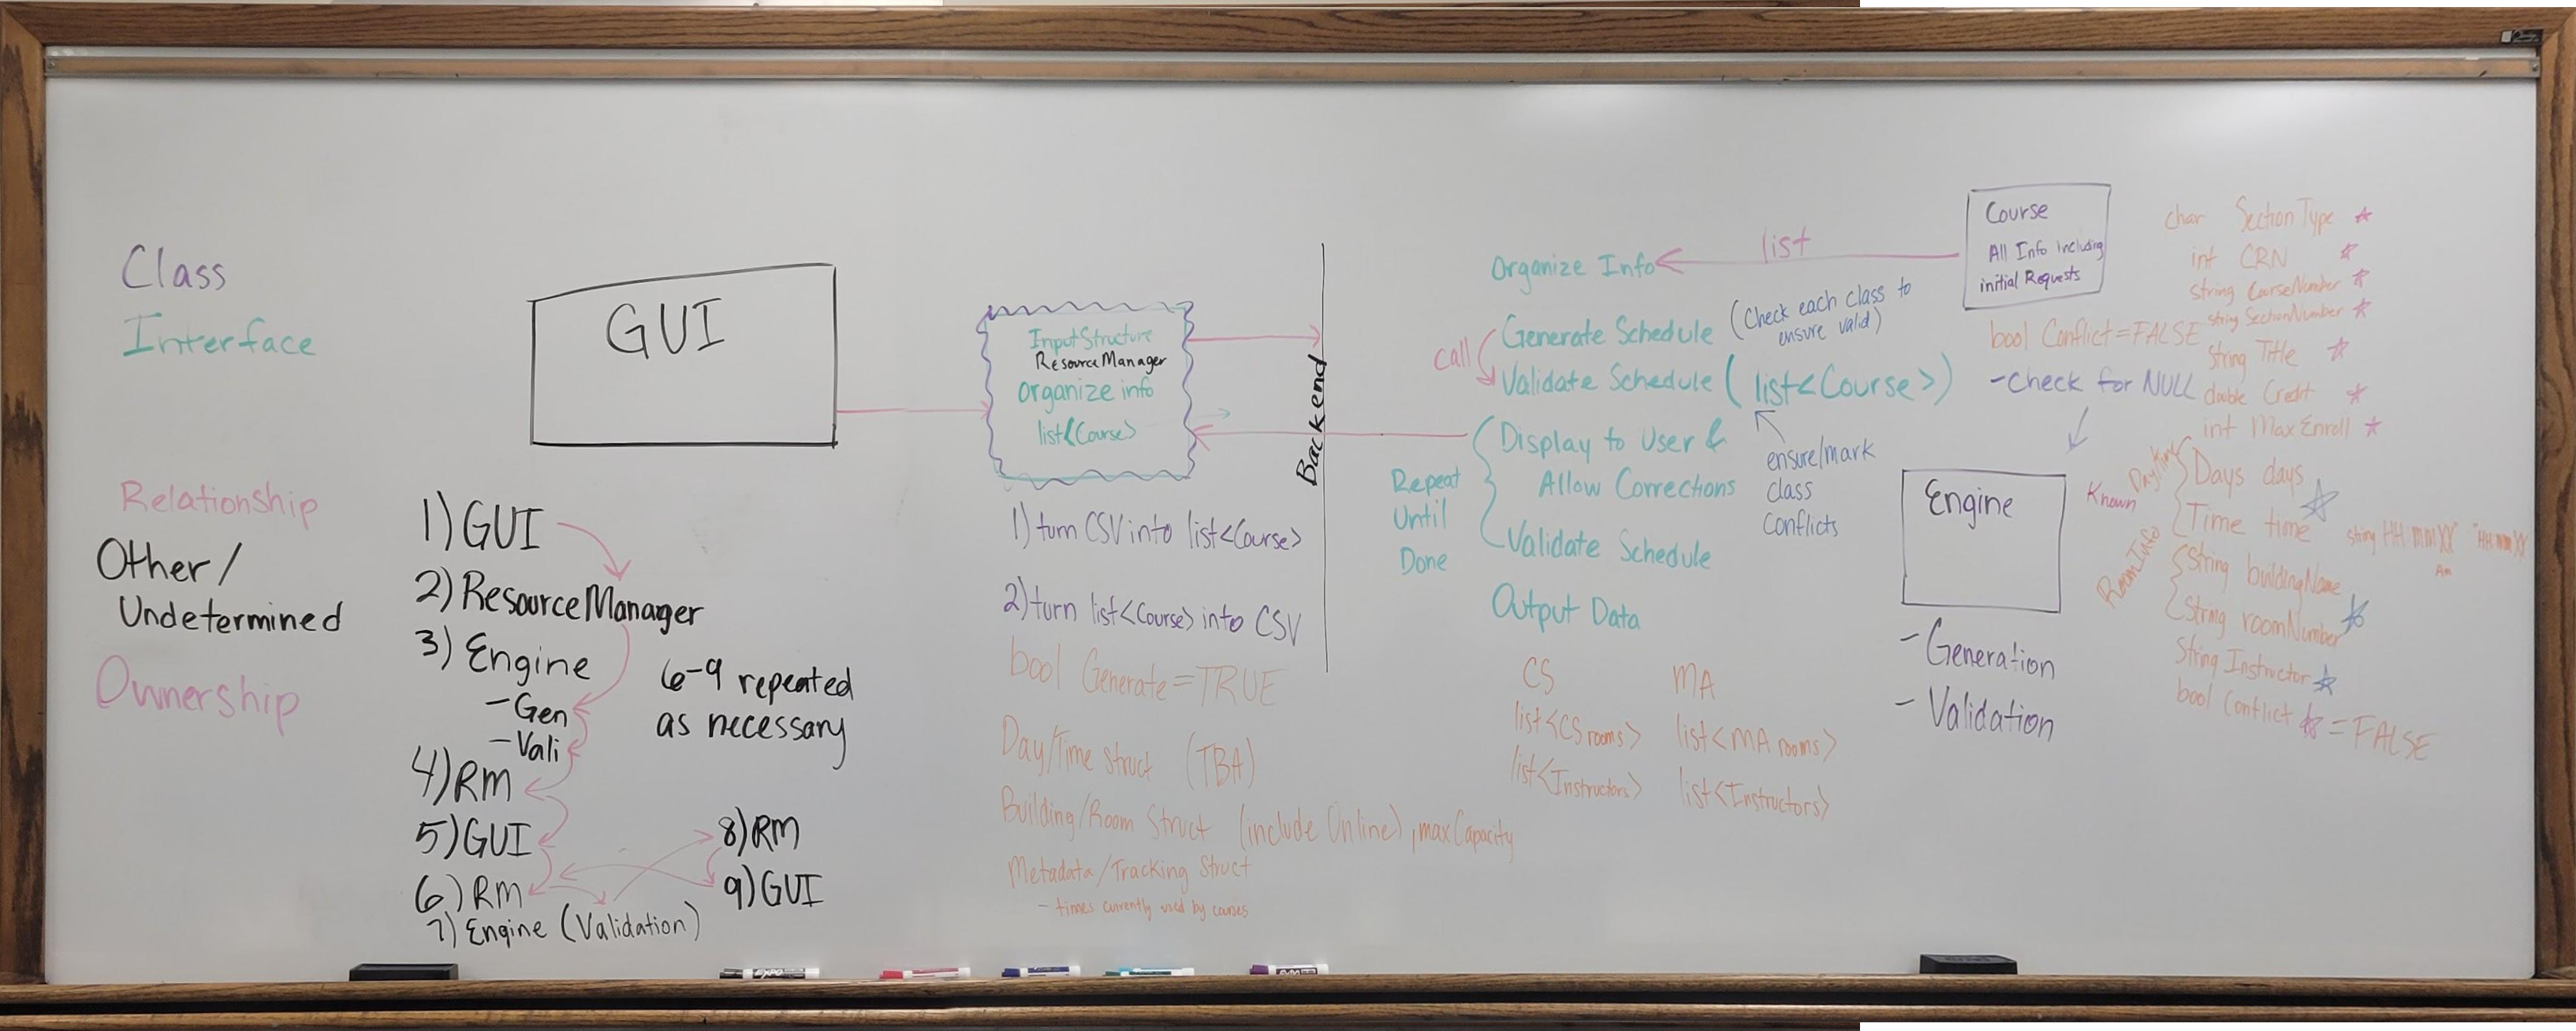 Class
Interface
Relationship
Other/
Undetermined
Ownership
GUI
1) GUI
2) ResourceManager
3) Engine
- Gen
- Vali
4) RM
5) GUI
6) RM
7) Engine (Validation)
8) RM
9) GUI
6-9 repeated
as necessary
InputStructure
ResourceManager
organize info
list<Course>
1) turn CSV into list<Course>
2) turn list<Course> into CSV
bool Generate = TRUE
Day/Time Struct (TBA)
Building/Room Struct (include Online), maxCapacity
Metadata/Tracking Struct
- times currently used by courses
Backend
Organize Info
list
Generate Schedule
(Check each class to
ensure valid)
call
Validate Schedule (list<Course>)
Display to User &
Allow Corrections
Validate Schedule
Repeat
Until
Done
ensure/mark
class
conflicts
Output Data
CS
list<CS rooms>
list<Instructors>
MA
list<MA rooms>
list<Instructors>
Course
All Info Including
initial Requests
bool Conflict = FALSE
- Check for NULL
Engine
- Generation
- Validation
char SectionType
int CRN
string CourseNumber
string SectionNumber
String Title
double Credit
int MaxEnroll
Known
Day/Time
Days days
Time time
string HH:mm XX
"HH:mm XX"
Am
RoomInfo
String buildingName
String roomNumber
String Instructor
bool Conflict = FALSE
EXPO